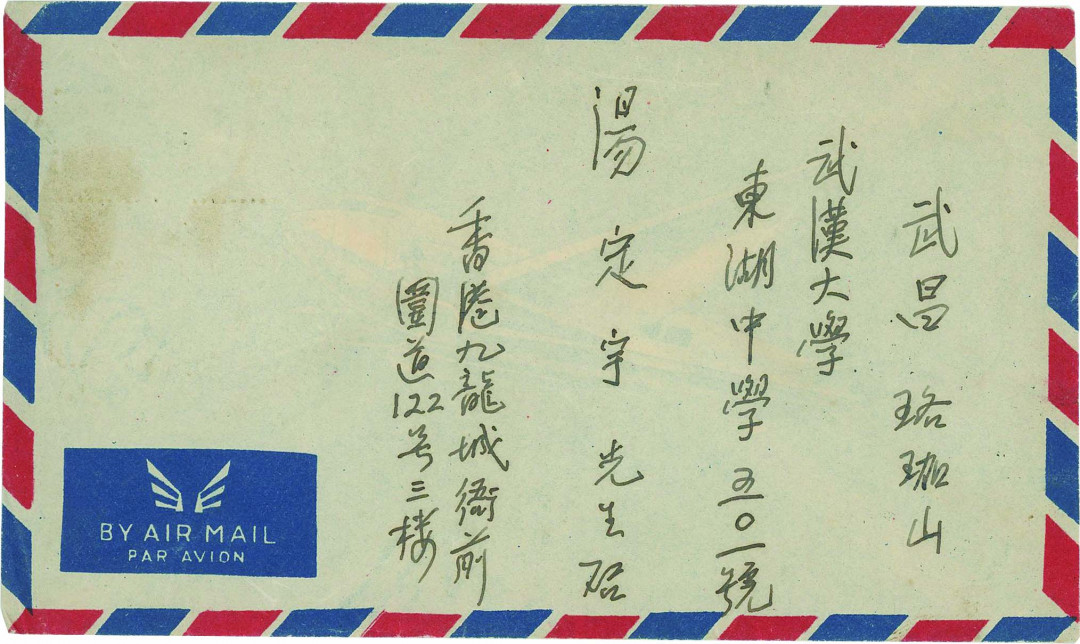 武昌 珞珈山
武漢大學
東湖中學 五一〇一號
湯定宇先生啓
香港九龍城衙前
圍道122号三楼
BY AIR MAIL
PAR AVION